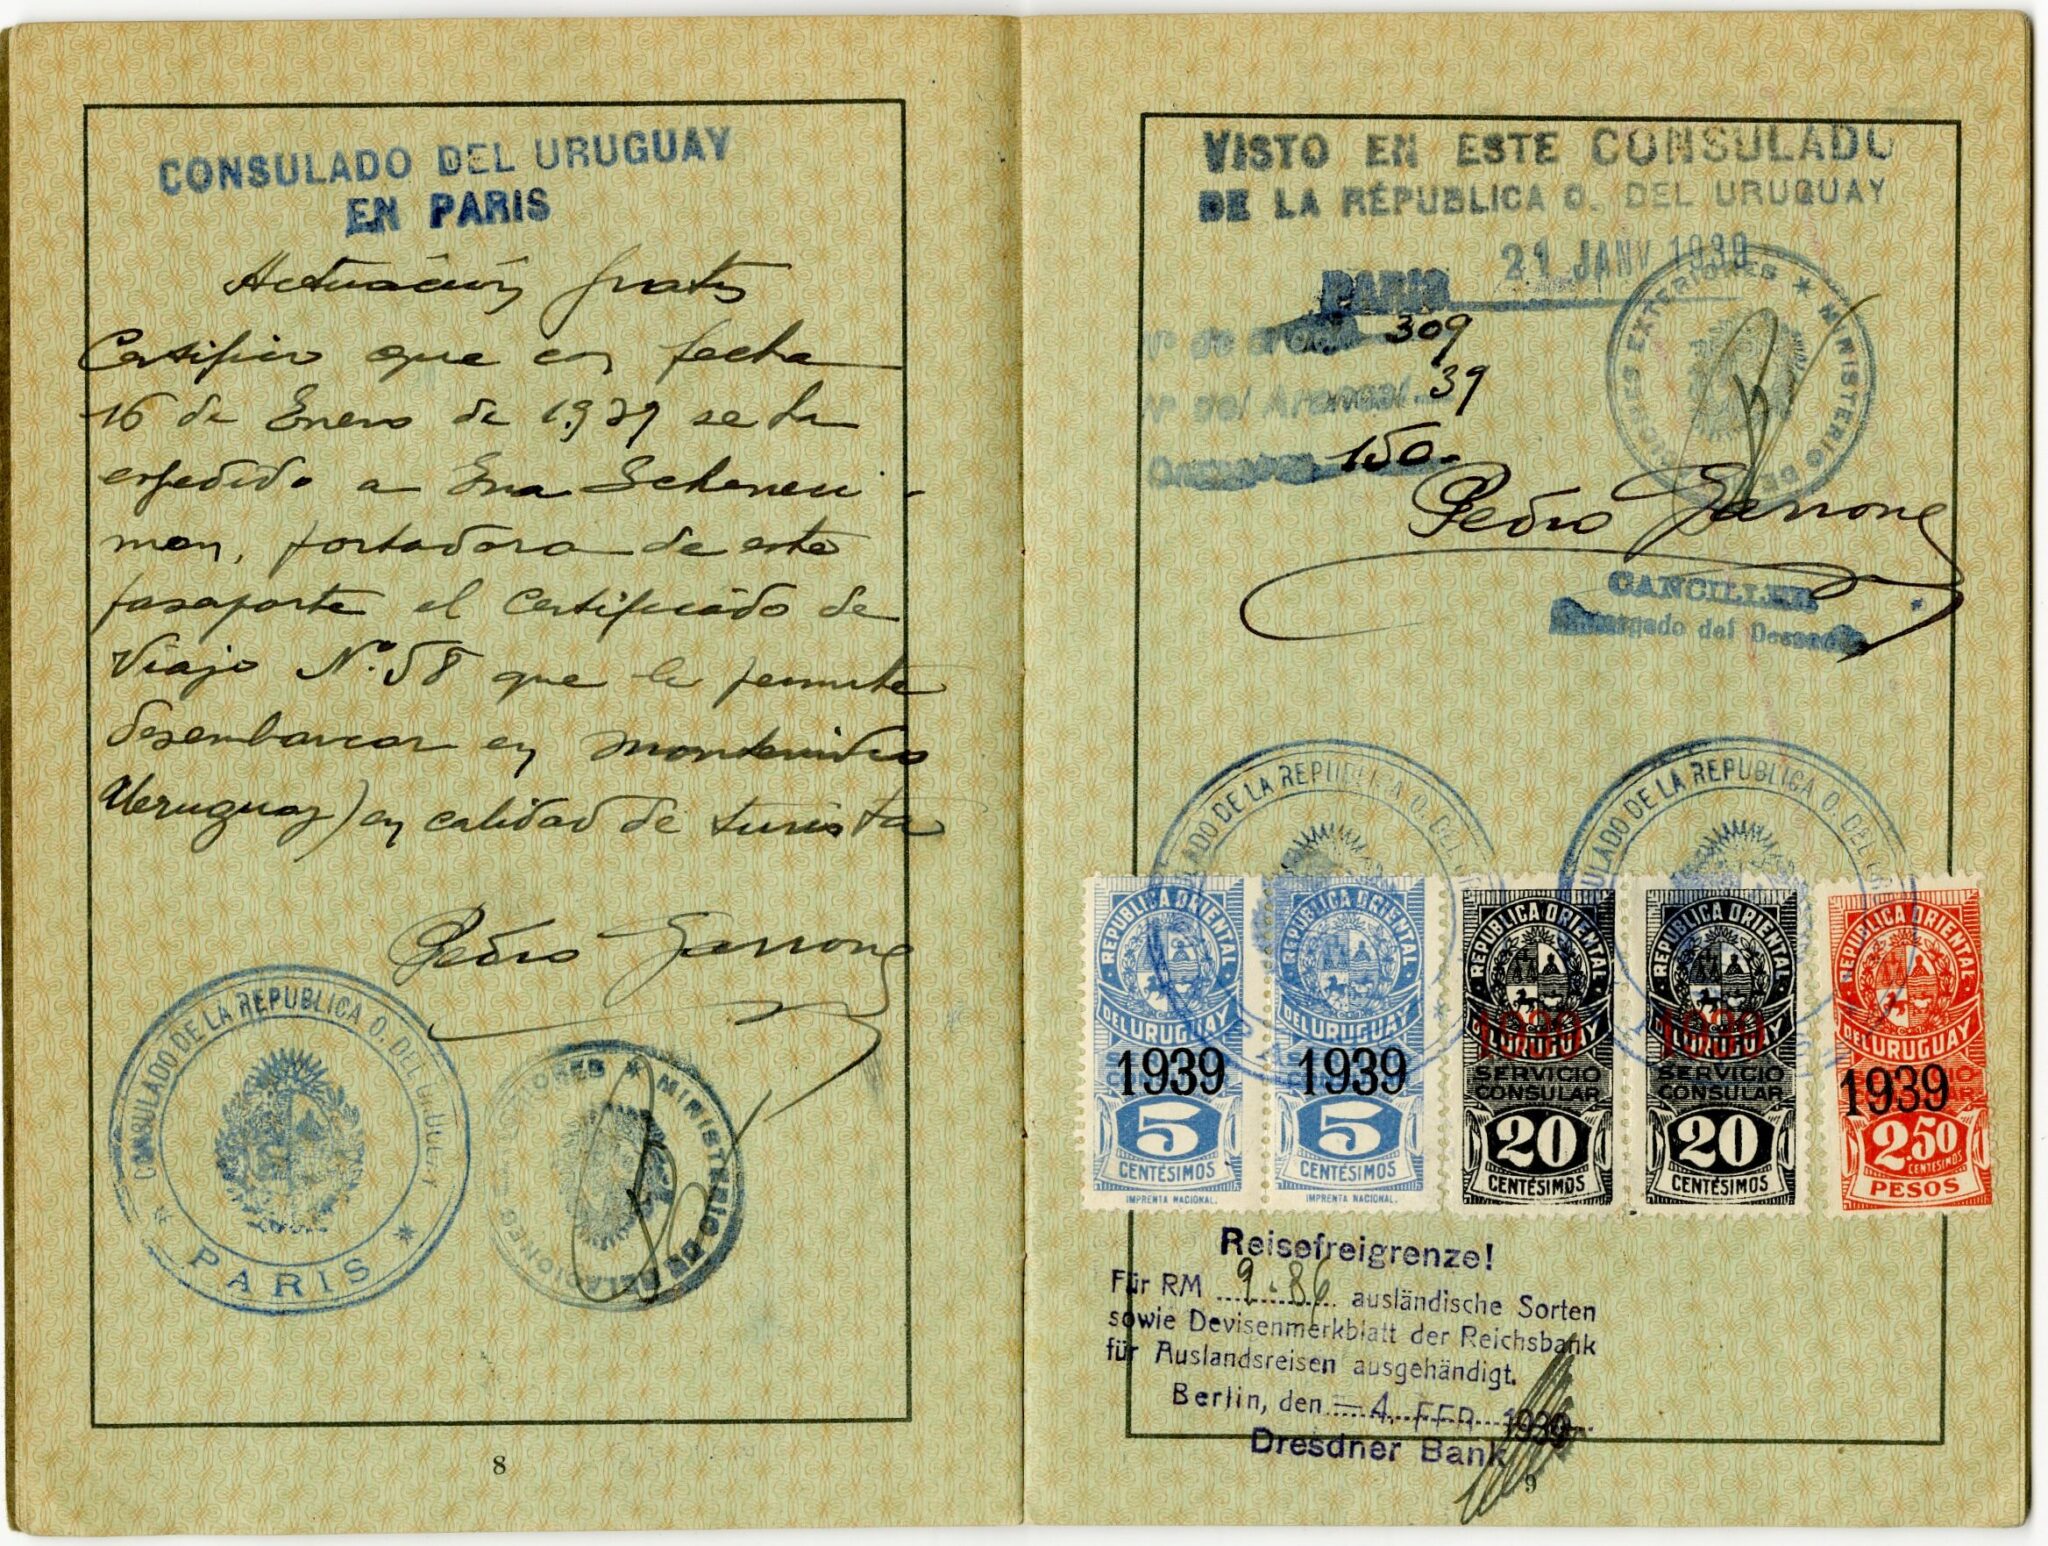 CONSULADO DEL URUGUAY
EN PARIS
Actuación gratis
Certifico que con fecha
16 de Enero de 1.939 se ha
expedido a Eva Scheneu-
man, portadora de este
pasaporte el Certificado de
Viaje Nº 58 que le permite
desembarcar en Montevideo
Uruguay) en calidad de turista
Pedro Garrone
CONSULADO DE LA REPUBLICA O. DEL URUGUAY
* PARIS *
MINISTERIO DE RELACIONES EXTERIORES *
8
VISTO EN ESTE CONSULADO
DE LA REPUBLICA O. DEL URUGUAY
PARIS 21 JANV 1939
Nº de orden 309
Nº del Arancel 39
150.-
MINISTERIO DE RELACIONES EXTERIORES *
Pedro Garrone
CANCILLER
Encargado del Despacho
CONSULADO DE LA REPUBLICA O. DEL
CONSULADO DE LA REPUBLICA O. DEL
REPUBLICA ORIENTAL
DEL URUGUAY
1939
5
CENTÉSIMOS
IMPRENTA NACIONAL.
REPUBLICA ORIENTAL
DEL URUGUAY
1939
5
CENTÉSIMOS
IMPRENTA NACIONAL.
REPUBLICA ORIENTAL
DEL URUGUAY
1939
SERVICIO
CONSULAR
20
CENTÉSIMOS
REPUBLICA ORIENTAL
DEL URUGUAY
1939
SERVICIO
CONSULAR
20
CENTÉSIMOS
REPUBLICA ORIENTAL
DEL URUGUAY
1939
2.50
CENTÉSIMOS
PESOS
Reisefreigrenze!
Für RM 9.86 ausländische Sorten
sowie Devisenmerkblatt der Reichsbank
für Auslandsreisen ausgehändigt.
Berlin, den -4. FEB. 1939
Dresdner Bank
9